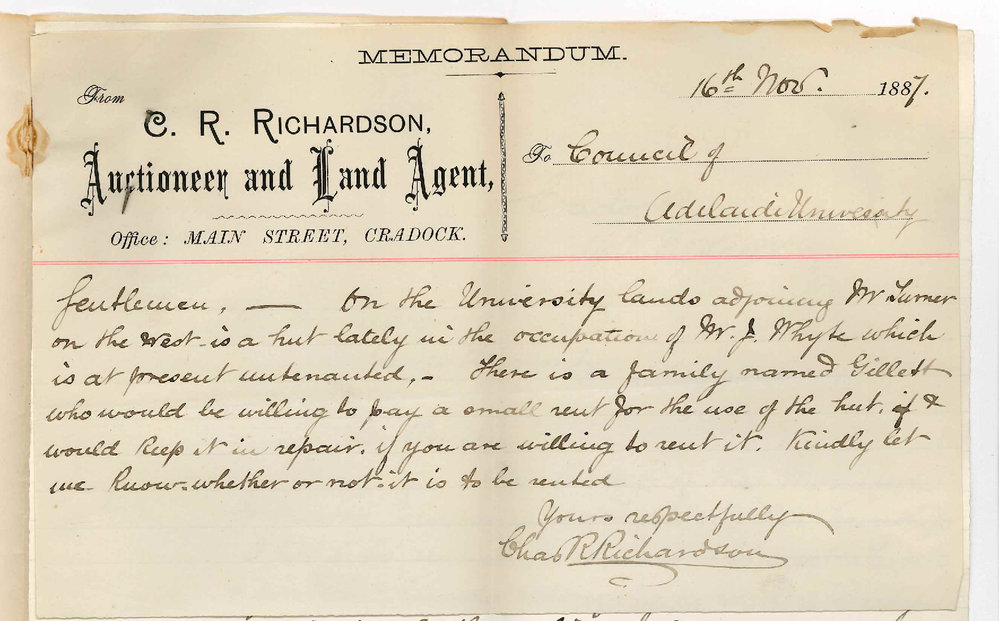 MEMORANDUM.
16th Nov. 1887.
From
C. R. RICHARDSON,
Auctioneer and Land Agent,
Office: MAIN STREET, CRADOCK.
To Council of
Adelaide University
Gentlemen. — On the University lands adjoining Mr Turner
on the West is a hut lately in the occupation of Mr. J. Whyte which
is at present untenanted. — There is a family named Gillett
who would be willing to pay a small rent for the use of the hut. if &
would keep it in repair. if you are willing to rent it. Kindly let
me know whether or not it is to be rented
Yours respectfully
Chas R Richardson